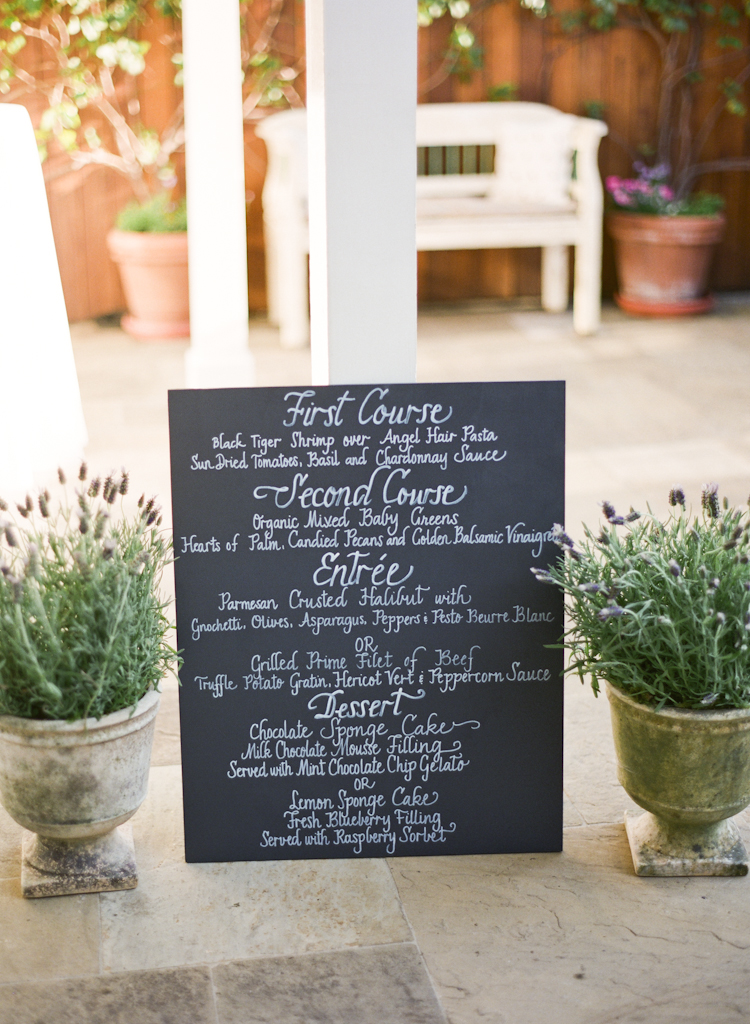 First Course
Black Tiger Shrimp over Angel Hair Pasta
Sun Dried Tomatoes, Basil and Chardonnay Sauce
Second Course
Organic Mixed Baby Greens
Hearts of Palm, Candied Pecans and Golden Balsamic Vinaigret
Entrée
Parmesan Crusted Halibut with
Gnochetti, Olives, Asparagus, Peppers & Pesto Beurre Blanc
OR
Grilled Prime Filet of Beef
Truffle Potato Gratin, Hericot Vert & Peppercorn Sauce
Dessert
Chocolate Sponge Cake
Milk Chocolate Mousse Filling
Served with Mint Chocolate Chip Gelato
OR
Lemon Sponge Cake
Fresh Blueberry Filling
Served with Raspberry Sorbet